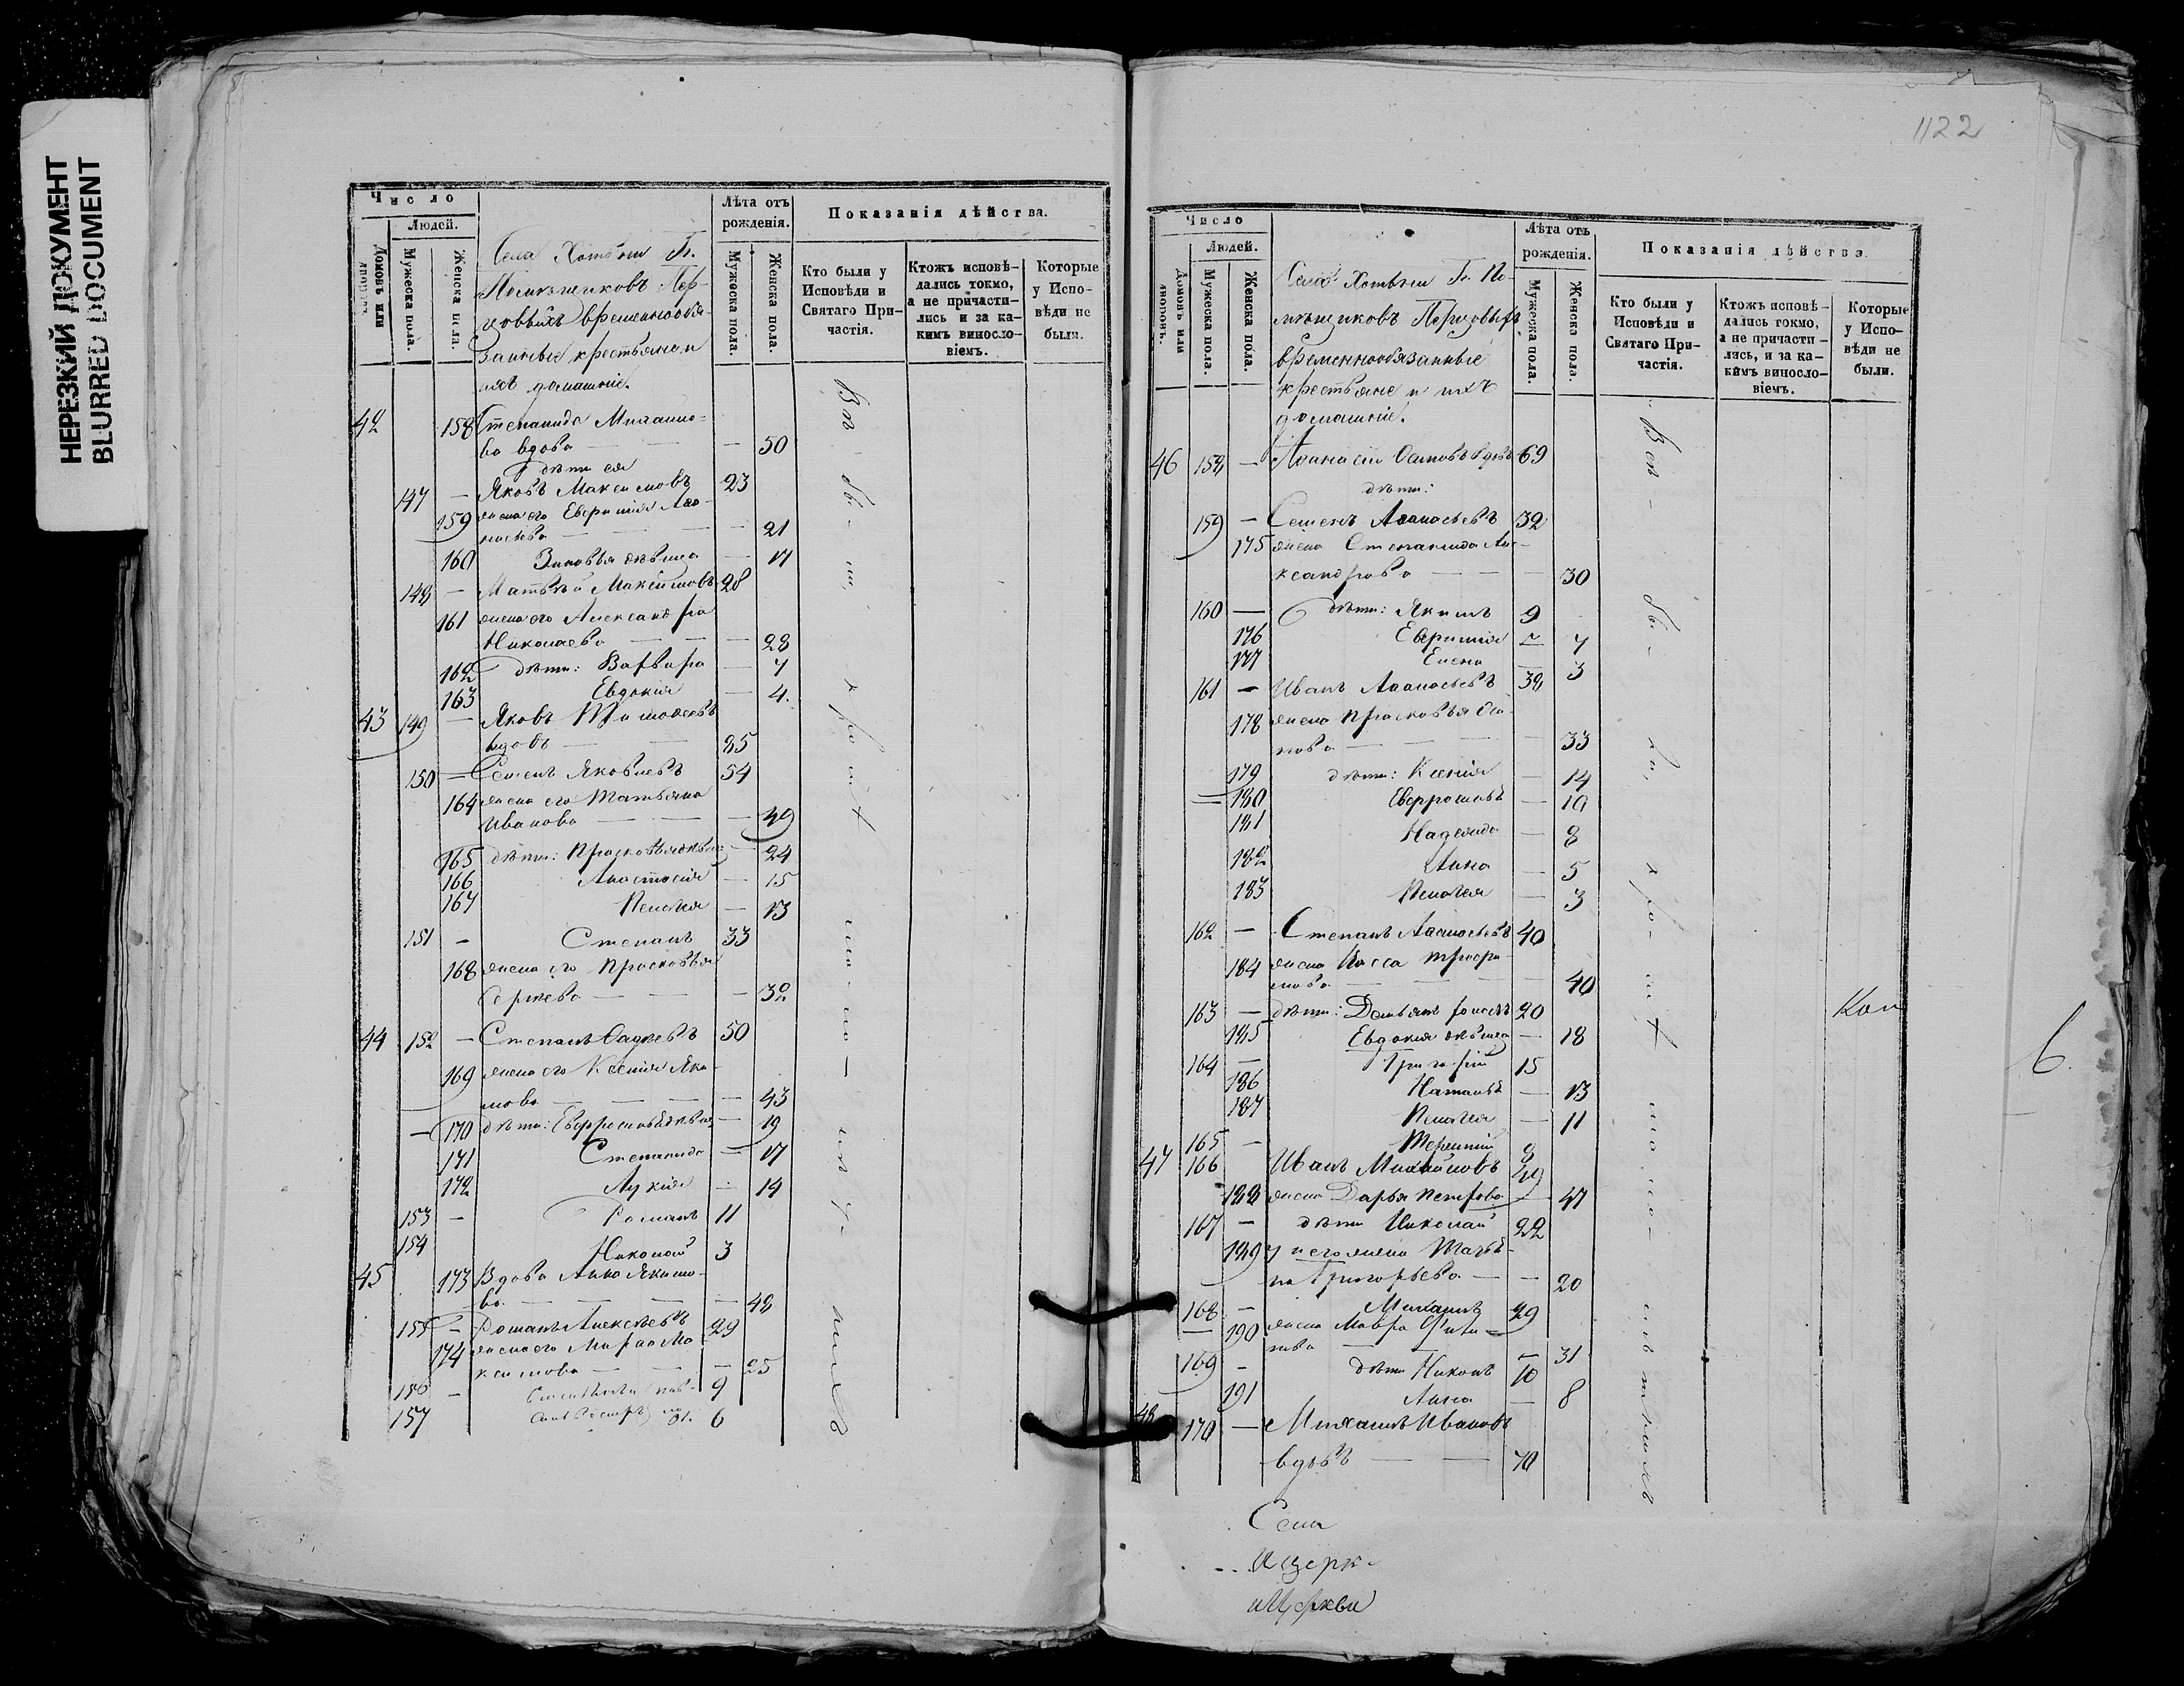 НЕРЕЗКИЙ ДОКУМЕНТ
BLURRED DOCUMENT
Число
Людей.
Домовъ или
Мужеска пола.
Женска пола.
Села Хотѣни Гг.
Помѣщиковъ Пер-
цовыхъ временнообя-
занные крестьяне и
ихъ домашніе.
Лѣта отъ
рожденія.
Мужеска пола.
Женска пола.
Показанія дѣйства.
Кто были у
Исповѣди и
Святаго При-
частія.
Ктожъ исповѣ-
дались токмо,
а не причасти-
лись и за ка-
кимъ винословіемъ.
Которые
у Испо-
вѣди не
были.
42 158 Степанида
ва вдова — — 50
Дѣти ея
147 — Яковъ Максимовъ 23
159 жена его Евфимія Аѳа-
насьева — — 21
160 Зиновья дѣвица — 17
148 — Матвѣй Максимовъ 28
161 жена его Александра
Николаева — — 28
162 дѣти: Варвара — 7
163 Евдокія — 4.
43 149 — Яковъ Тимоѳеевъ
вдовъ — — 85
150 — Семенъ Яковлевъ 54
164 жена его Татьяна
Иванова — — 49
165 дѣти: Прасковья дѣвица — 24
166 Анастасія — 15
167 Пелагея — 13
151 — Степанъ 33
168 жена его Прасковья
Сергѣева — — 32
44 152 — Степанъ 50
169 жена его Ксенія Яки-
мова — — 43
170 дѣти: Евфросинья дѣвица — 19
171 Степанида — 17
172 Лукія — 14
153 — Романъ 11
154 Николай 3
45 173 Вдова Анна Якимо-
ва — — — 48
155 — Романъ Алексѣевъ 29
174 жена его Марѳа Ма-
ксимова — — 25
156 — 9
157 6
1122
Число
Людей.
Домовъ или
дворовъ.
Мужеска пола.
Женска пола.
Села Хотѣни Гг. По-
мѣщиковъ Перцовыхъ
временнообязанные
крестьяне и ихъ
домашніе.
Лѣта отъ
рожденія.
Мужеска пола.
Женска пола.
Показанія дѣйства
Кто были у
Исповѣди и
Святаго При-
частія.
Ктожъ исповѣ-
дались токмо,
а не причасти-
лись, и за ка-
кимъ винословіемъ.
Которые
у Испо-
вѣди не
были.
46 158 — Аѳанасій Осиповъ вдовъ 69
дѣти:
159 — Семенъ Аѳанасьевъ 32
175 жена Степанида Але-
ксандрова — — 30
160 — дѣти: Якимъ 9
176 Евфимія — 7
177 Елена — 3
161 — Иванъ Аѳанасьевъ 38
178 жена Прасковья Оси-
пова — — 33
179 дѣти: Ксенія — 14
180 Евфросинья — 10
181 Надежда — 8
182 Анна — 5
183 Пелагея — 3
162 — Степанъ Аѳанасьевъ 40
184 жена Васса Трофи-
мова — — 40
163 — дѣти: Демьянъ 20
185 Евдокія дѣвица — 18
164 — Григорій 15
186 Наталья — 13
187 Пелагея — 11
165 — Терентій 8
47 166 Иванъ Михайловъ 49
188 жена Дарья Петрова — 47
167 — дѣти Николай 22
189 у него жена Татья-
на Григорьева — — 20
168 — Михаилъ 29
190 жена Мавра Фили-
пова — — 31
169 — дѣти Никонъ 10
191 Анна — 8
48 170 — Михаилъ Ивановъ
вдовъ — — 70
6
Села
Церкви